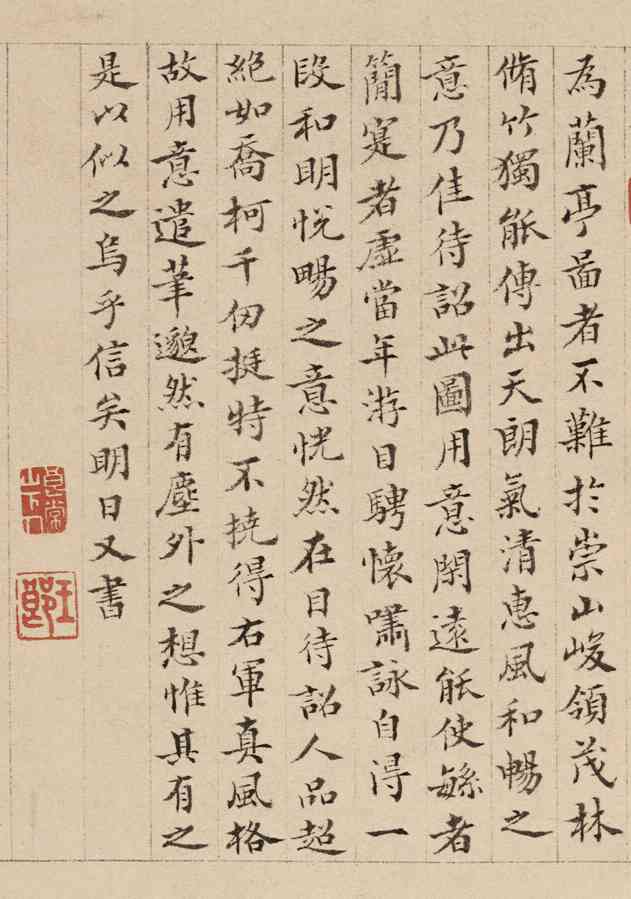 為蘭亭啚者不難於崇山峻領茂林
脩竹獨能傳出天朗氣清惠風和暢之
意乃佳待詔此圖用意閑遠能使緐者
簡寔者虛當年游目騁懷嘯詠自得一
段和明悅暢之意恍然在目待詔人品超
絕如喬柯千仞挺特不撓得右軍真風格
故用意遣筆邈然有塵外之想惟其有之
是以似之烏乎信矣明日又書